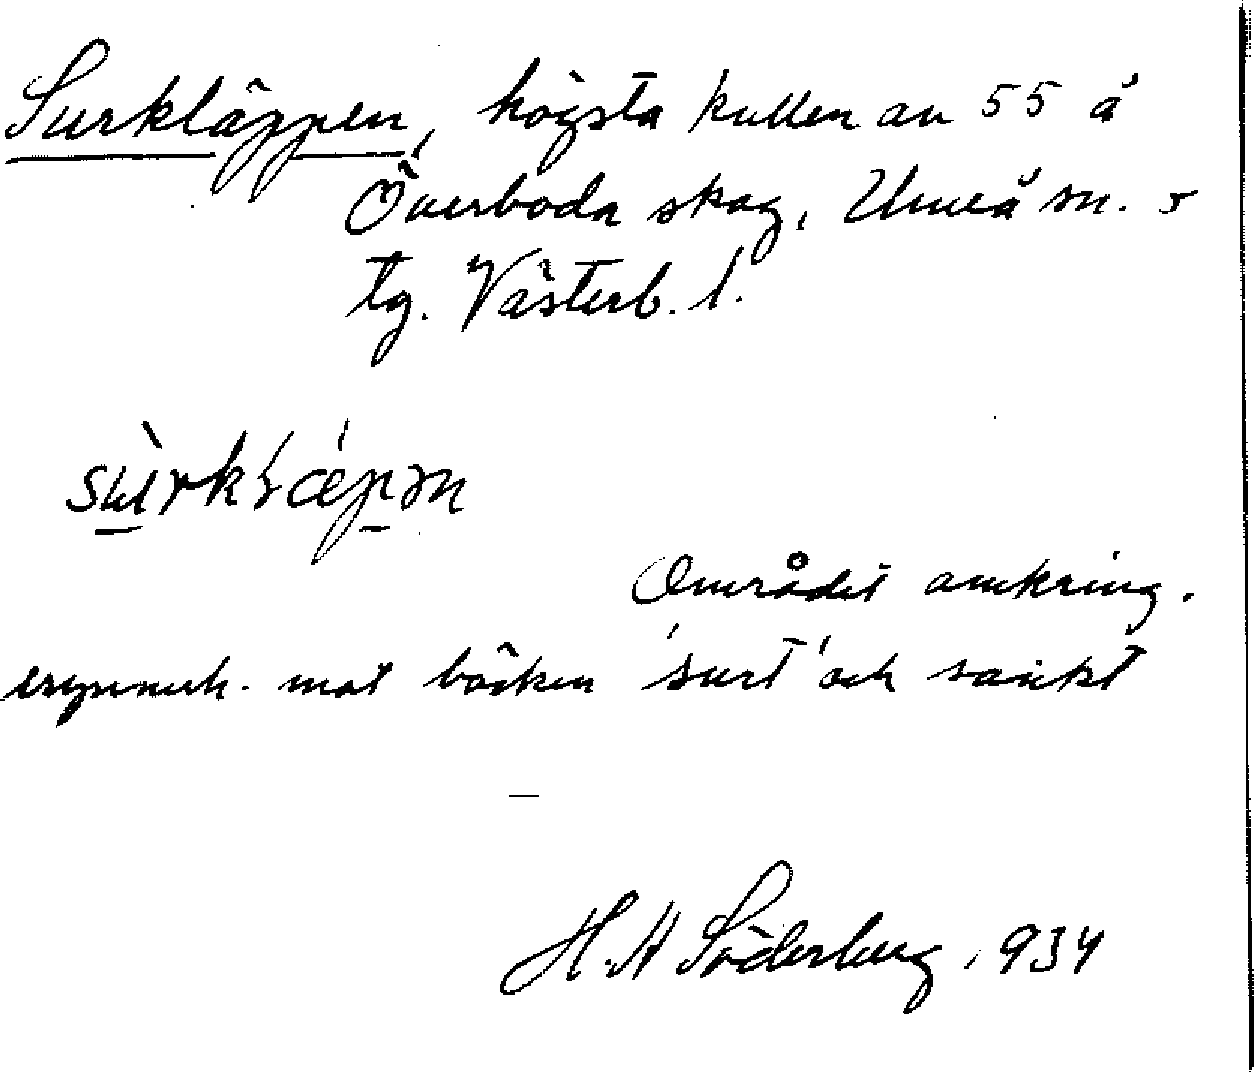 Surkläppen, högsta kullen av 55 å
Överboda skog, Umeå sn. o
tg. Västerb. l.
Området omkring.
mot bäcken 'surt' och sankt
—
H. A Söderberg, 934